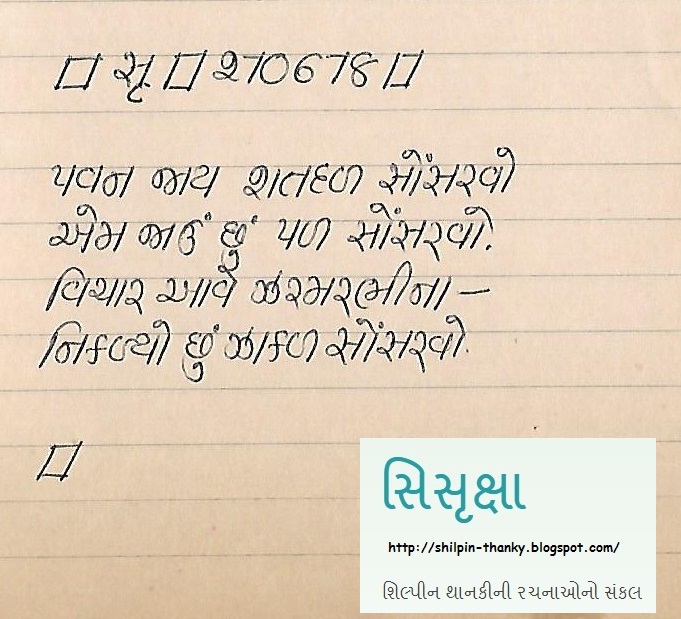 □ સૃ □ 270678 □
પવન જાય શતદળ સોંસરવો
એમ જાઉં છું પળ સોંસરવો.
વિચાર આવે ઝરમરભીના —
નિકળ્યો છું ઝાકળ સોંસરવો.
□
સિસૃક્ષા
http://shilpin-thanky.blogspot.com/
શિલ્પીન થાનકીની રચનાઓનો સંકલ